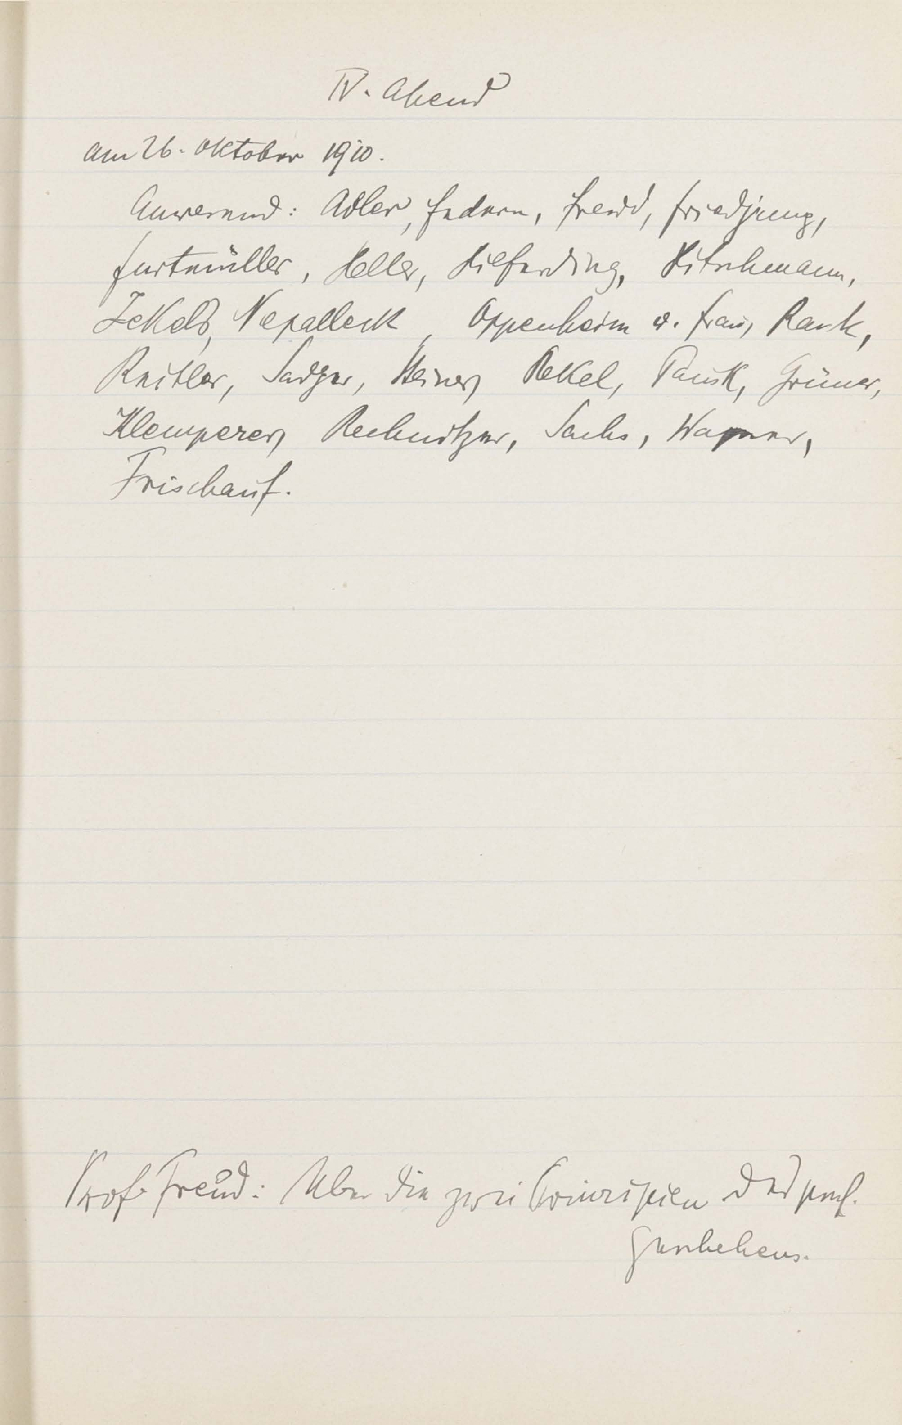 IV. Abend
am 26. Oktober 1910.
Anwesend: Adler, Federn, Freud, Friedjung,
Furtmüller, Heller, Hilferding, Hitschmann,
Jekels, Nepalleck, Oppenheim u. Frau, Rank,
Reitler, Sadger, Steiner, Stekel, Tausk, Grüner,
Klemperer, Rechnitzer, Sachs, Wagner,
Frischauf.
Prof. Freud: Über die zwei Prinzipien des psych.
Geschehens.